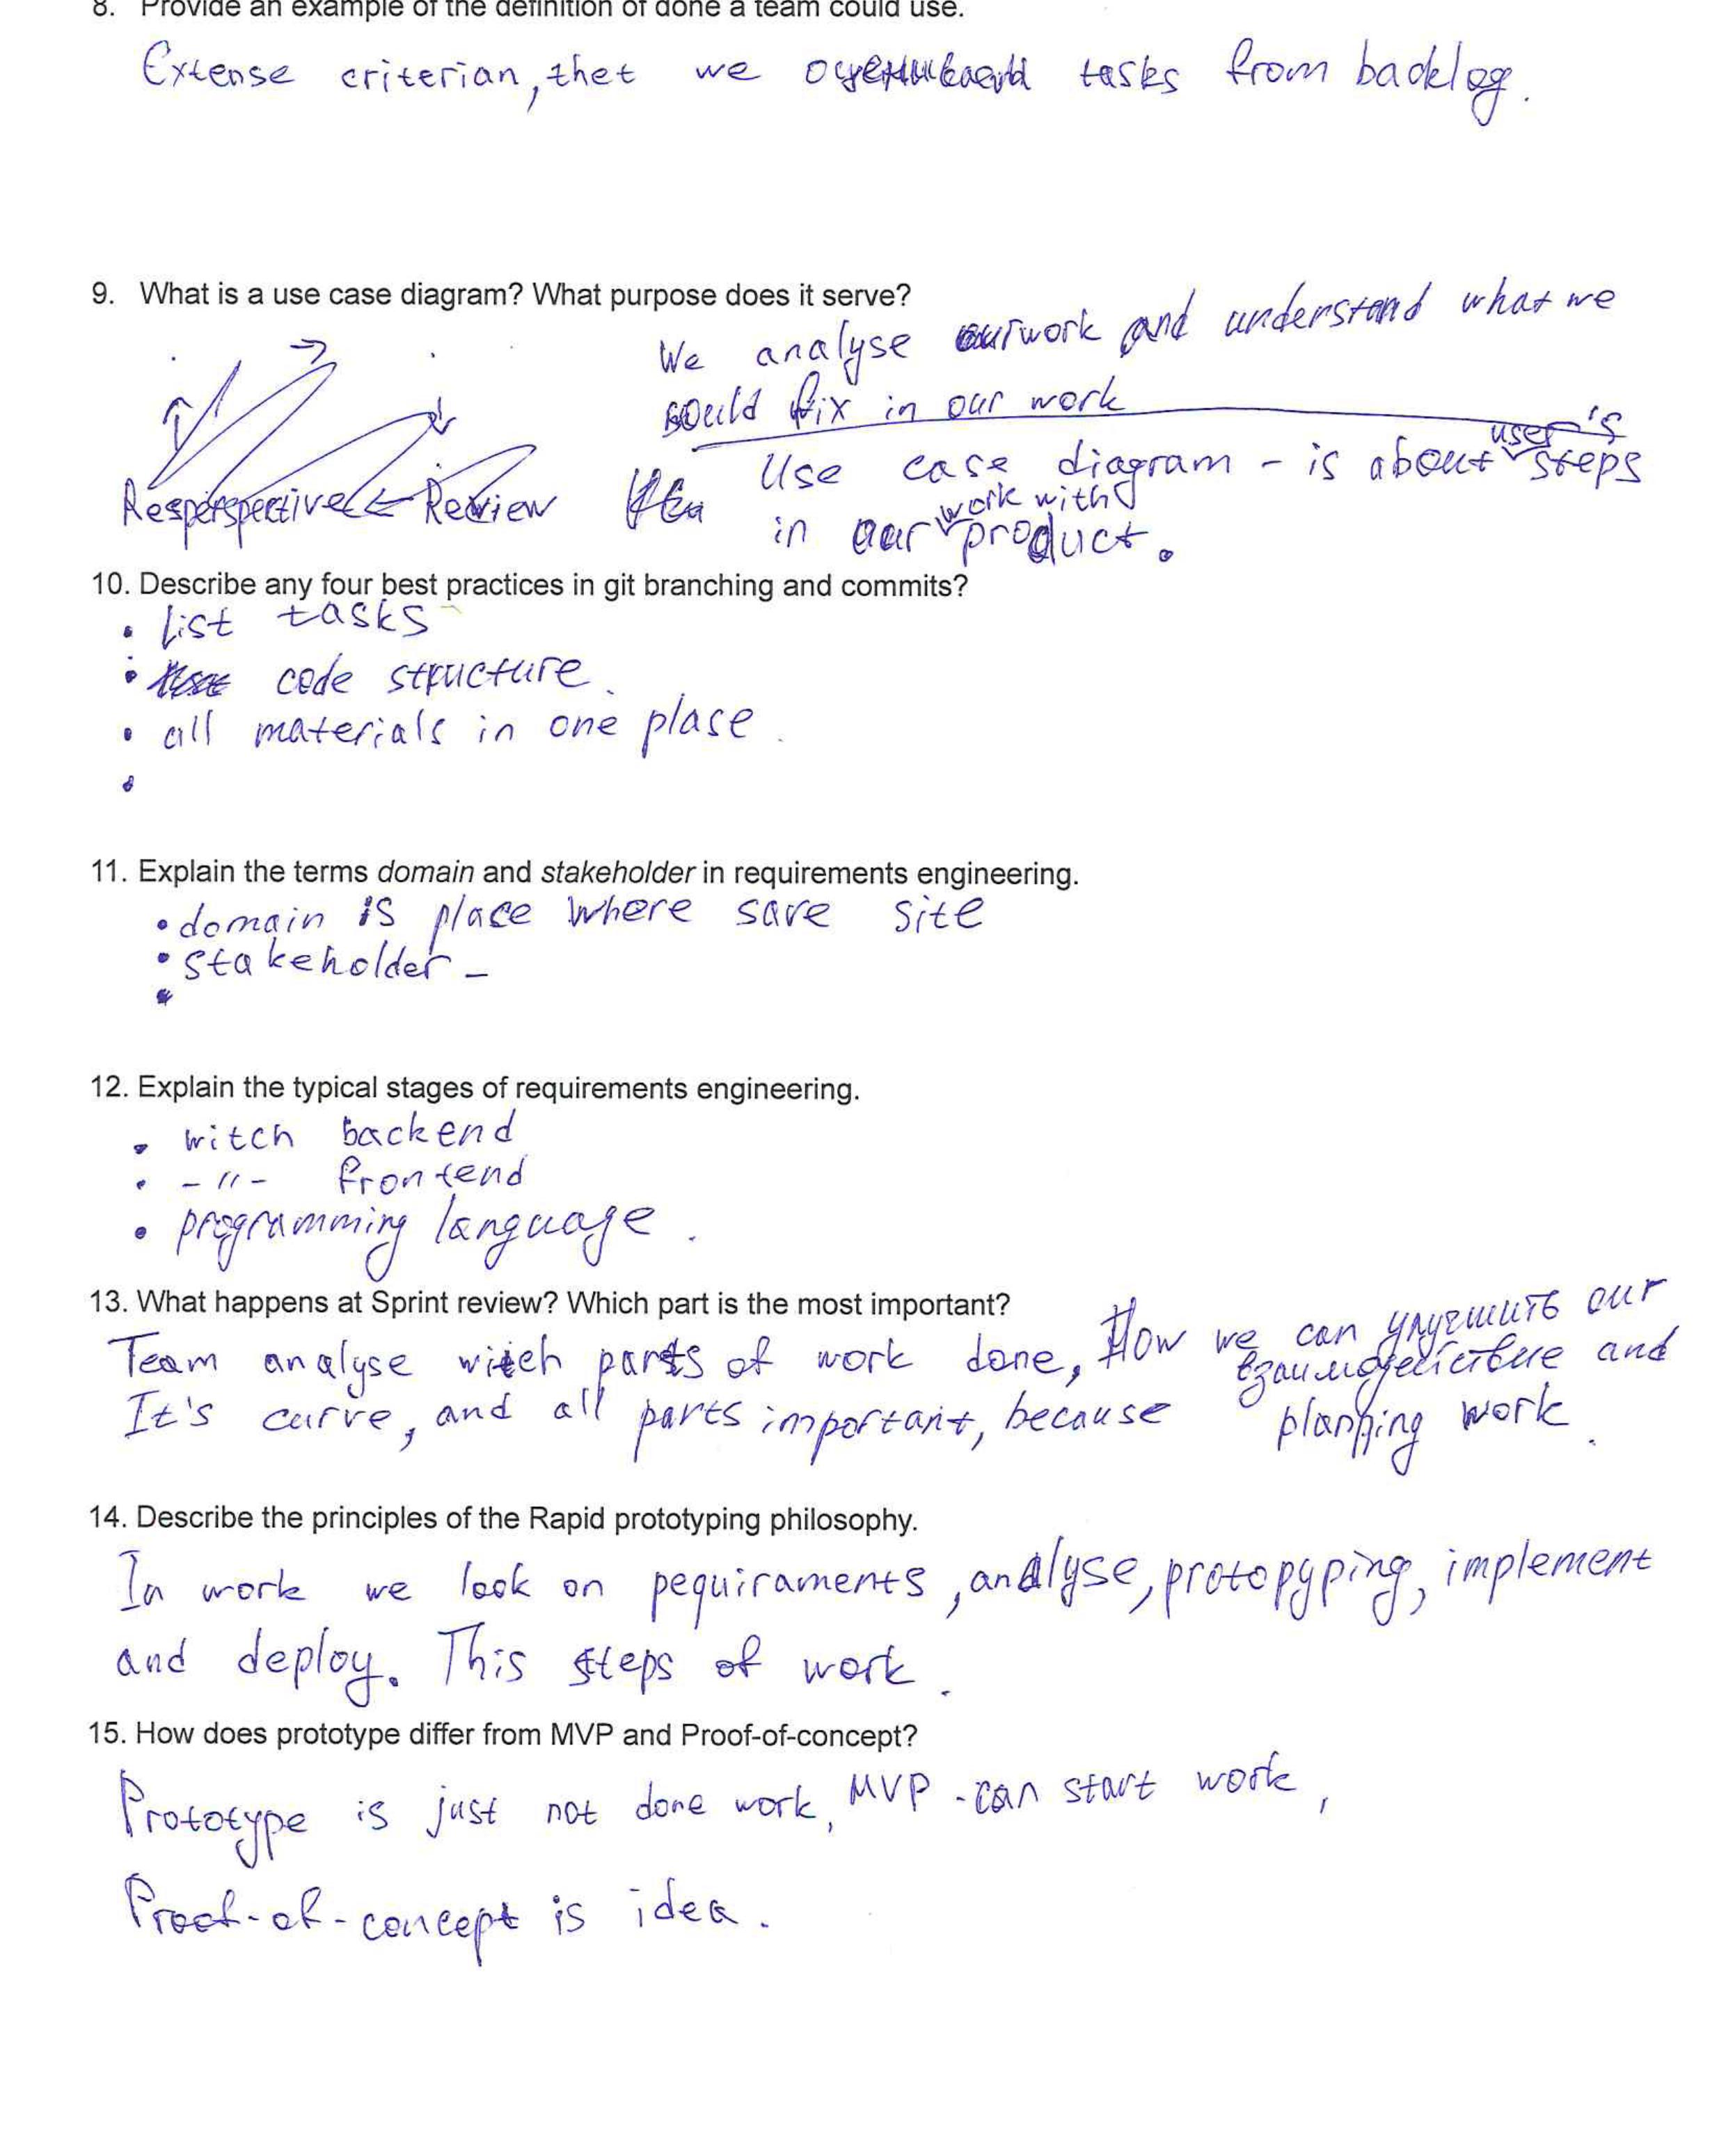 8. Provide an example of the definition of done a team could use.
Extense criterian, thet we оцениваем tasks from backlog.
9. What is a use case diagram? What purpose does it serve?
We analyse our work and understand what we
sould fix in our work
Resperspective Review
Use case diagram - is about user's steps
in our work with product.
10. Describe any four best practices in git branching and commits?
• list tasks
• code structure.
• all materials in one plase.
•
11. Explain the terms domain and stakeholder in requirements engineering.
• domain is place where save site
• stakeholder -
•
12. Explain the typical stages of requirements engineering.
• witch backend
• -"- frontend
• programming language.
13. What happens at Sprint review? Which part is the most important?
Team analyse witch parts of work done, How we can улучшить our
взаимодействие and
It's curve, and all parts important, because planning work.
14. Describe the principles of the Rapid prototyping philosophy.
In work we look on pequiraments, analyse, protopyping, implement
and deploy. This steps of work.
15. How does prototype differ from MVP and Proof-of-concept?
Prototype is just not done work, MVP - can start work,
Proof-of-concept is idea.